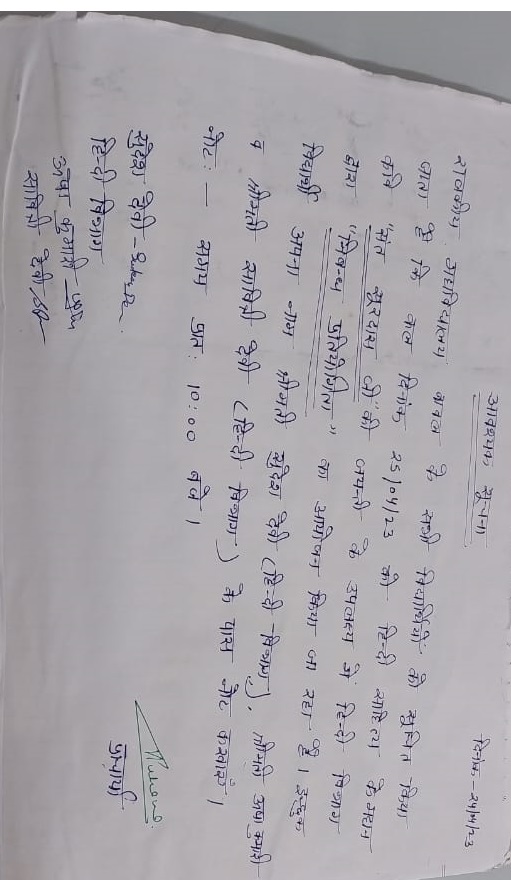 दिनांक - 24/4/23
आवश्यक सूचना
राजकीय महाविद्यालय बावल के सभी विद्यार्थियों को सूचित किया
जाता है कि कल दिनांक 25/04/23 को हिन्दी साहित्य के महान
कवि "संत सूरदास जी" की जयन्ती के उपलक्ष्य में हिन्दी विभाग
द्वारा "निबन्ध प्रतियोगिता" का आयोजन किया जा रहा है। इच्छुक
विद्यार्थी अपना नाम श्रीमती सुदेश देवी (हिन्दी विभाग), श्रीमती उषा कुमारी
व श्रीमती सावित्री देवी (हिन्दी विभाग) के पास नोट करवाएं।
नोट: - समय प्रात: 10:00 बजे।
सुदेश देवी -
हिन्दी विभाग
उषा कुमारी
सावित्री देवी
प्राचार्य